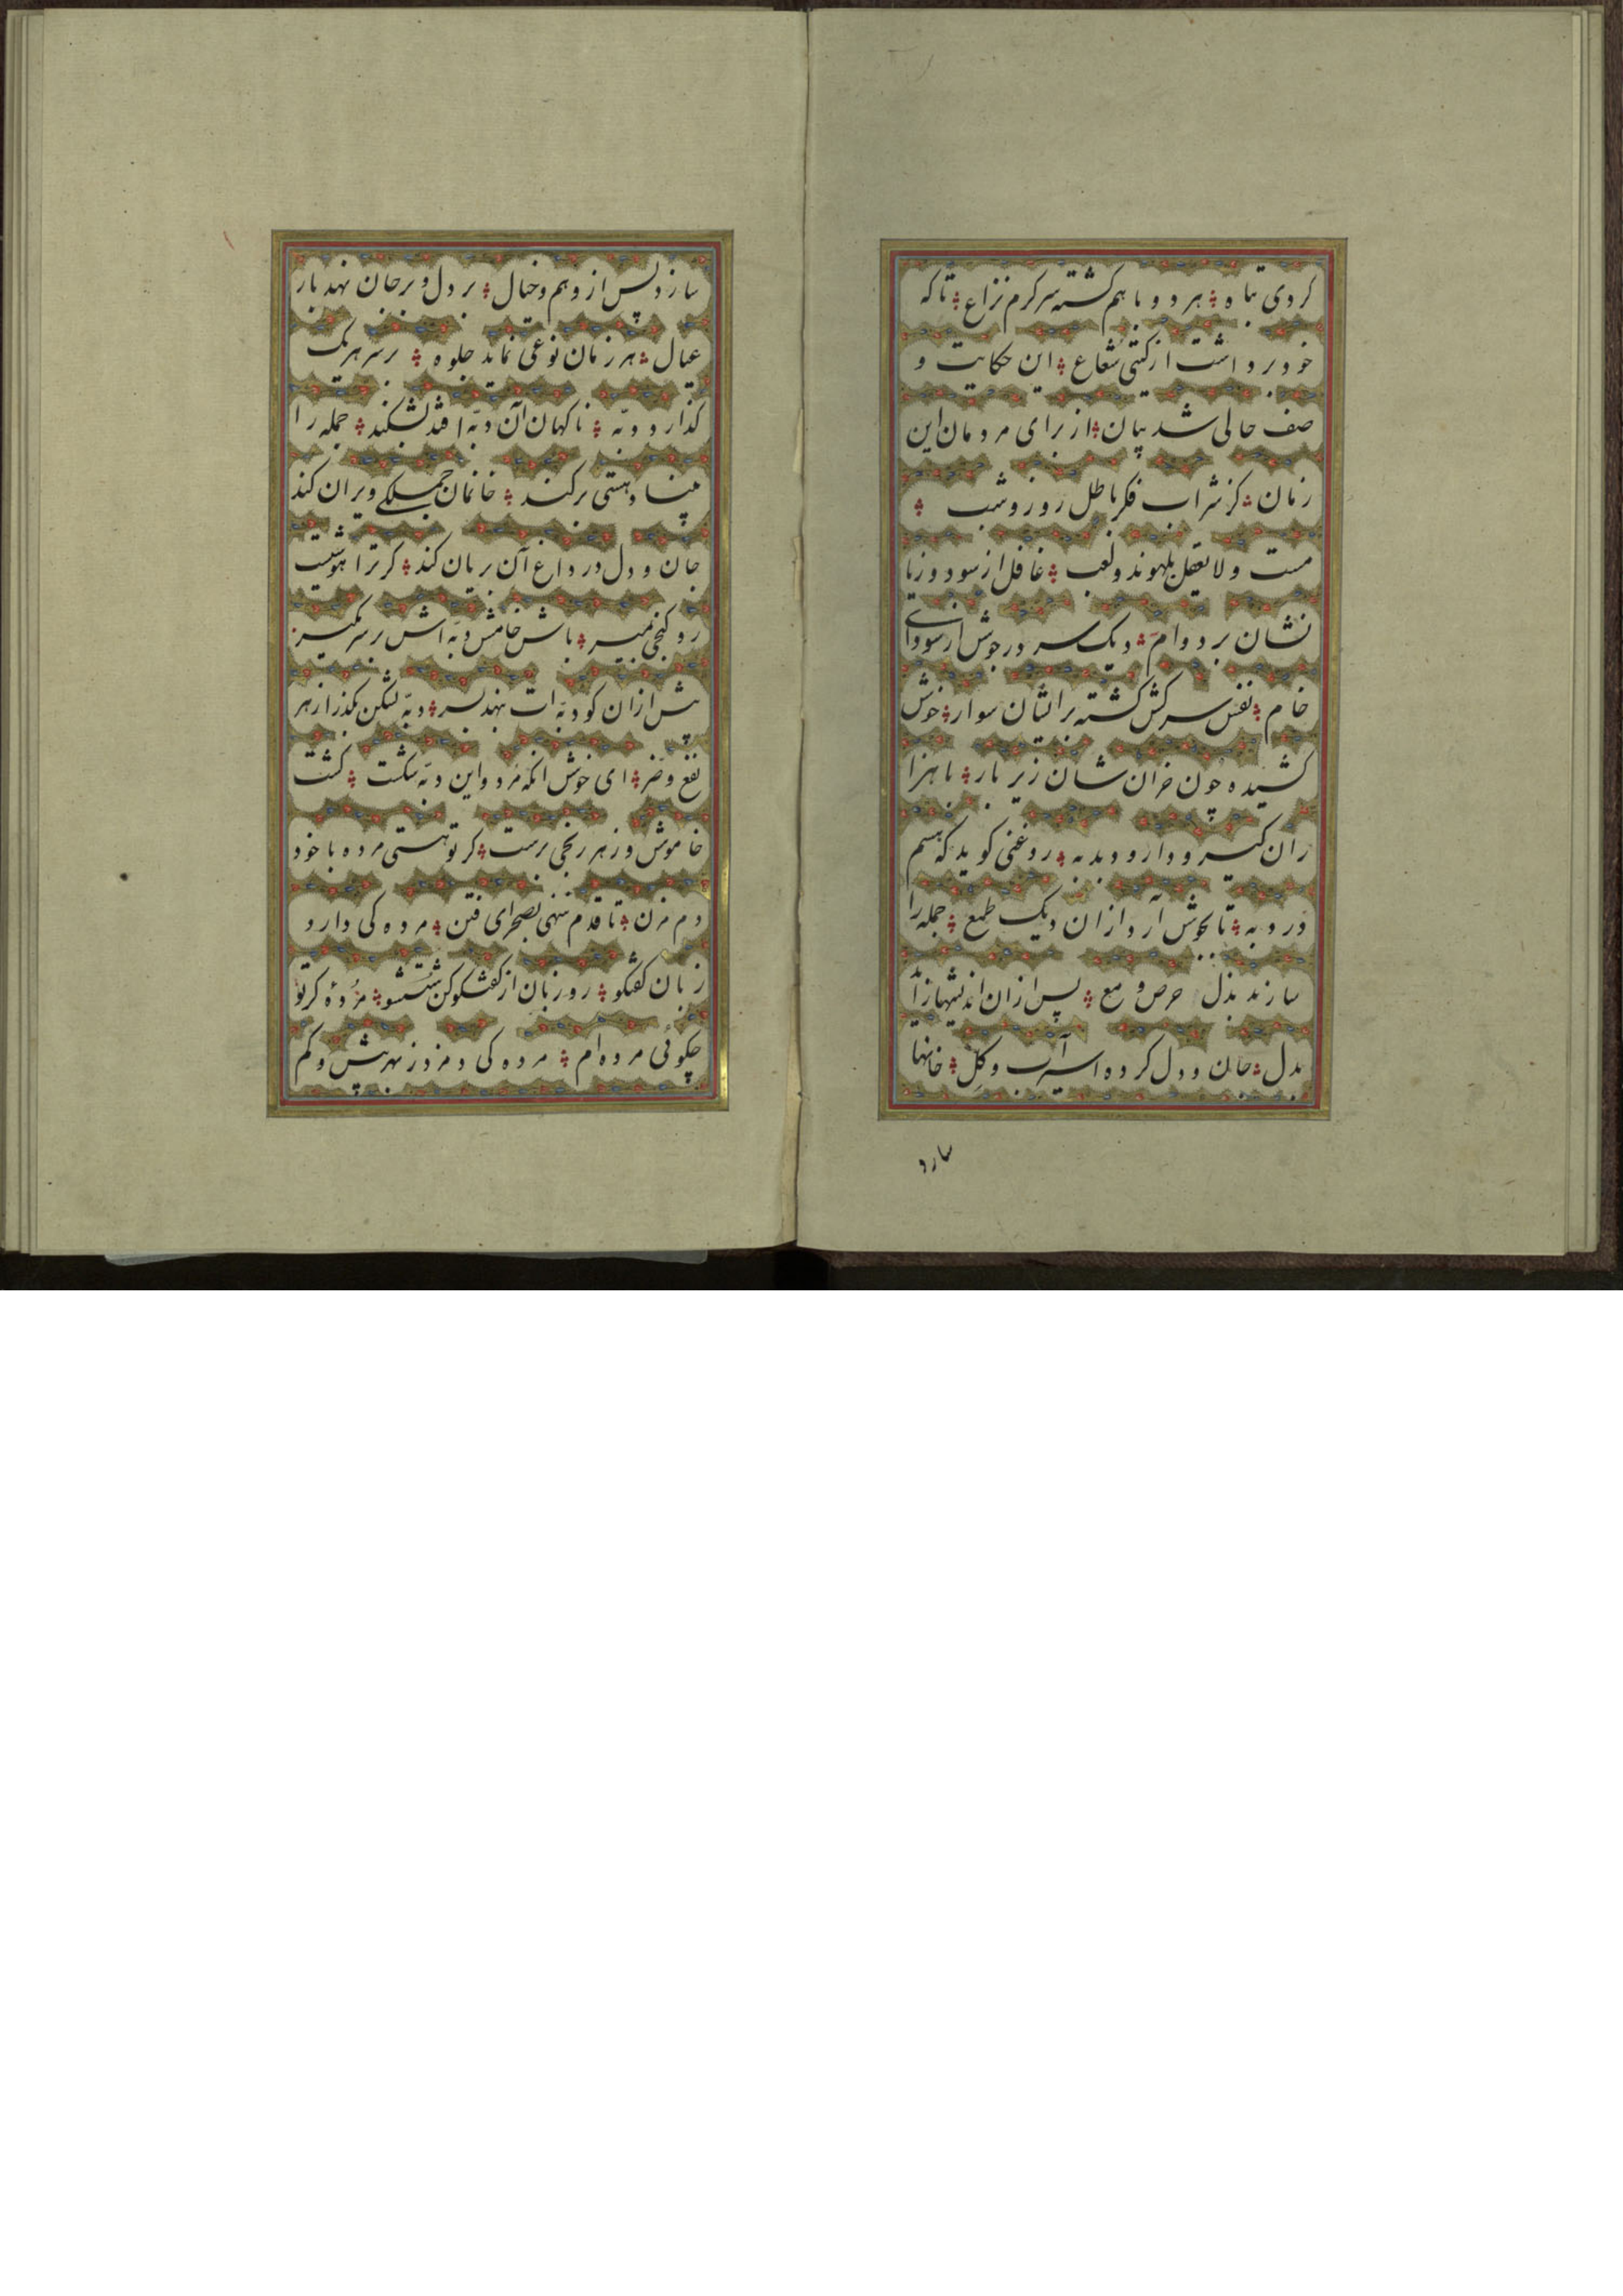 کردی تباه ❖ هر دو با هم کشته سرکرم نزاع ❖ تا که
خود برداشت از کیتی شعاع ❖ این حکایت و
صف حالی شد بیان ❖ از برای مردمان این
زمان ❖ کز شراب فکر باطل روز و شب ❖
مست و لا یعقل بلهوند و لعب ❖ غافل از سود و زیا
نشان بر دوام ❖ دیک سر در جوش از سودای
خام ❖ نفس سرکش کشته بر ایشان سوار ❖ خوش
کشیده چون خران شان زیر بار ❖ با هزا
ران کیر و دار و دبدبه ❖ روغنی کوید که هستم
در دبه ❖ تا بجوش آرد از ان دیک طمع ❖ جمله را
سازند بذل حرص و مع ❖ پس از ان اندیشها زاید
بدل ❖ جان و دل کرده اسیر آب و کل ❖ خانها
سازد
سازد پس از وهم و خیال ❖ بر دل و بر جان نهد بار
عیال ❖ هر زمان نوعی نماید جلوه ❖ بر سر هر یک
کذارد دبّه ❖ ناکهان آن دبّه افتد بشکند ❖ جمله را
بنیاد هستی بر کند ❖ خانمان جملکی ویران کند
جان و دل در داغ آن بریان کند ❖ کر ترا هوشیست
رو کنجی بمیر ❖ باش خامش دبّه اش بر سر مکیر
پیش از ان کو دبّه ات بنهد بسر ❖ دبّه بشکن بکذر از هر
نفع و ضر ❖ ای خوش انکه مرد و این دبّه شکست ❖ کشت
خاموش و ز هر رنجی برست ❖ کر تو هستی مرده با خود
دم مزن ❖ تا قدم ننهی بصحرای فتن ❖ مرده کی دارد
زبان کفتکو ❖ رو زبان از کفتکو کن شستشو ❖ مردهٔ کر تو
چکوئی مرده ام ❖ مرده کی دم زد ز بهر بیش و کم